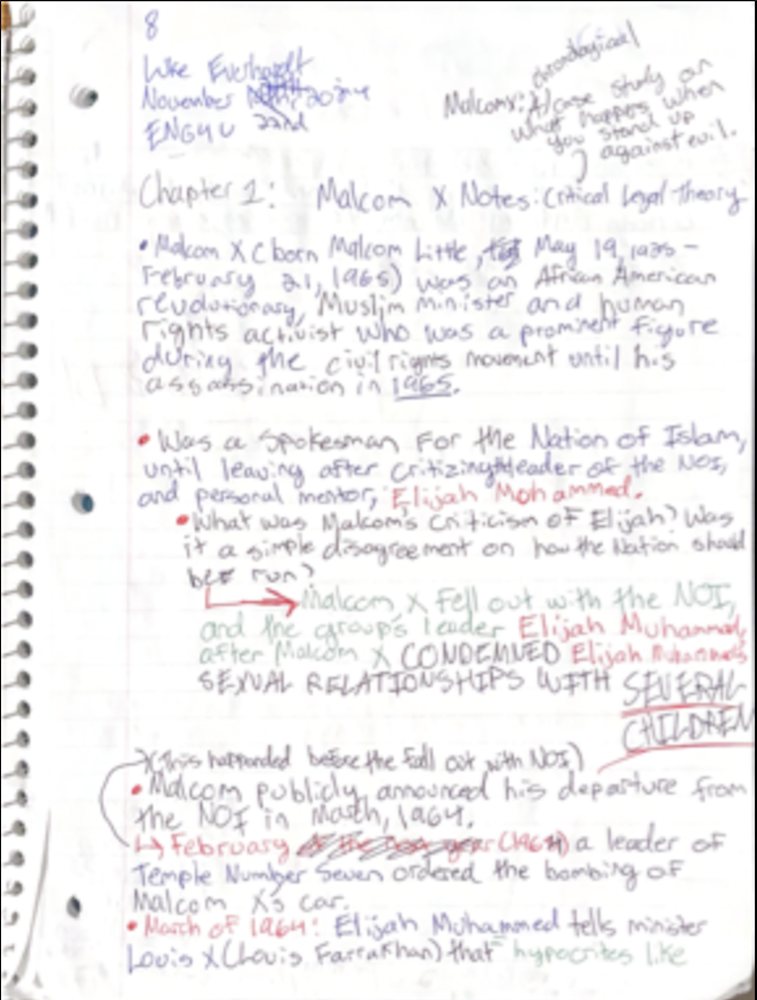 8
Luke Everhardt
November 2024
22nd
ENG4U
chronological
Malcom X: A case study on
what happens when
you stand up
against evil.
Chapter 1: Malcom X Notes: Critical Legal Theory
• Malcom X (born Malcom Little, May 19, 1925 -
February 21, 1965) was an African American
revolutionary, Muslim minister and human
rights activist who was a prominent figure
during the civil rights movement until his
assassination in 1965.
• Was a spokesman for the Nation of Islam,
until leaving after critizing the leader of the NOI,
and personal mentor, Elijah Mohammed.
• What was Malcom's criticism of Elijah? Was
it a simple disagreement on how the Nation should
be run?
→ Malcom X fell out with the NOI,
and the group's leader Elijah Muhammed,
after Malcom X CONDEMNED Elijah Muhammed's
SEXUAL RELATIONSHIPS WITH SEVERAL
CHILDREN
X(This happended before the fall out with NOI)
• Malcom publicly announced his departure from
the NOI in March, 1964.
↳ February (1964) a leader of
Temple Number Seven ordered the bombing of
Malcom X's car.
• March of 1964: Elijah Muhammed tells minister
Louis X (Louis Farrakhan) that "hypocrites like